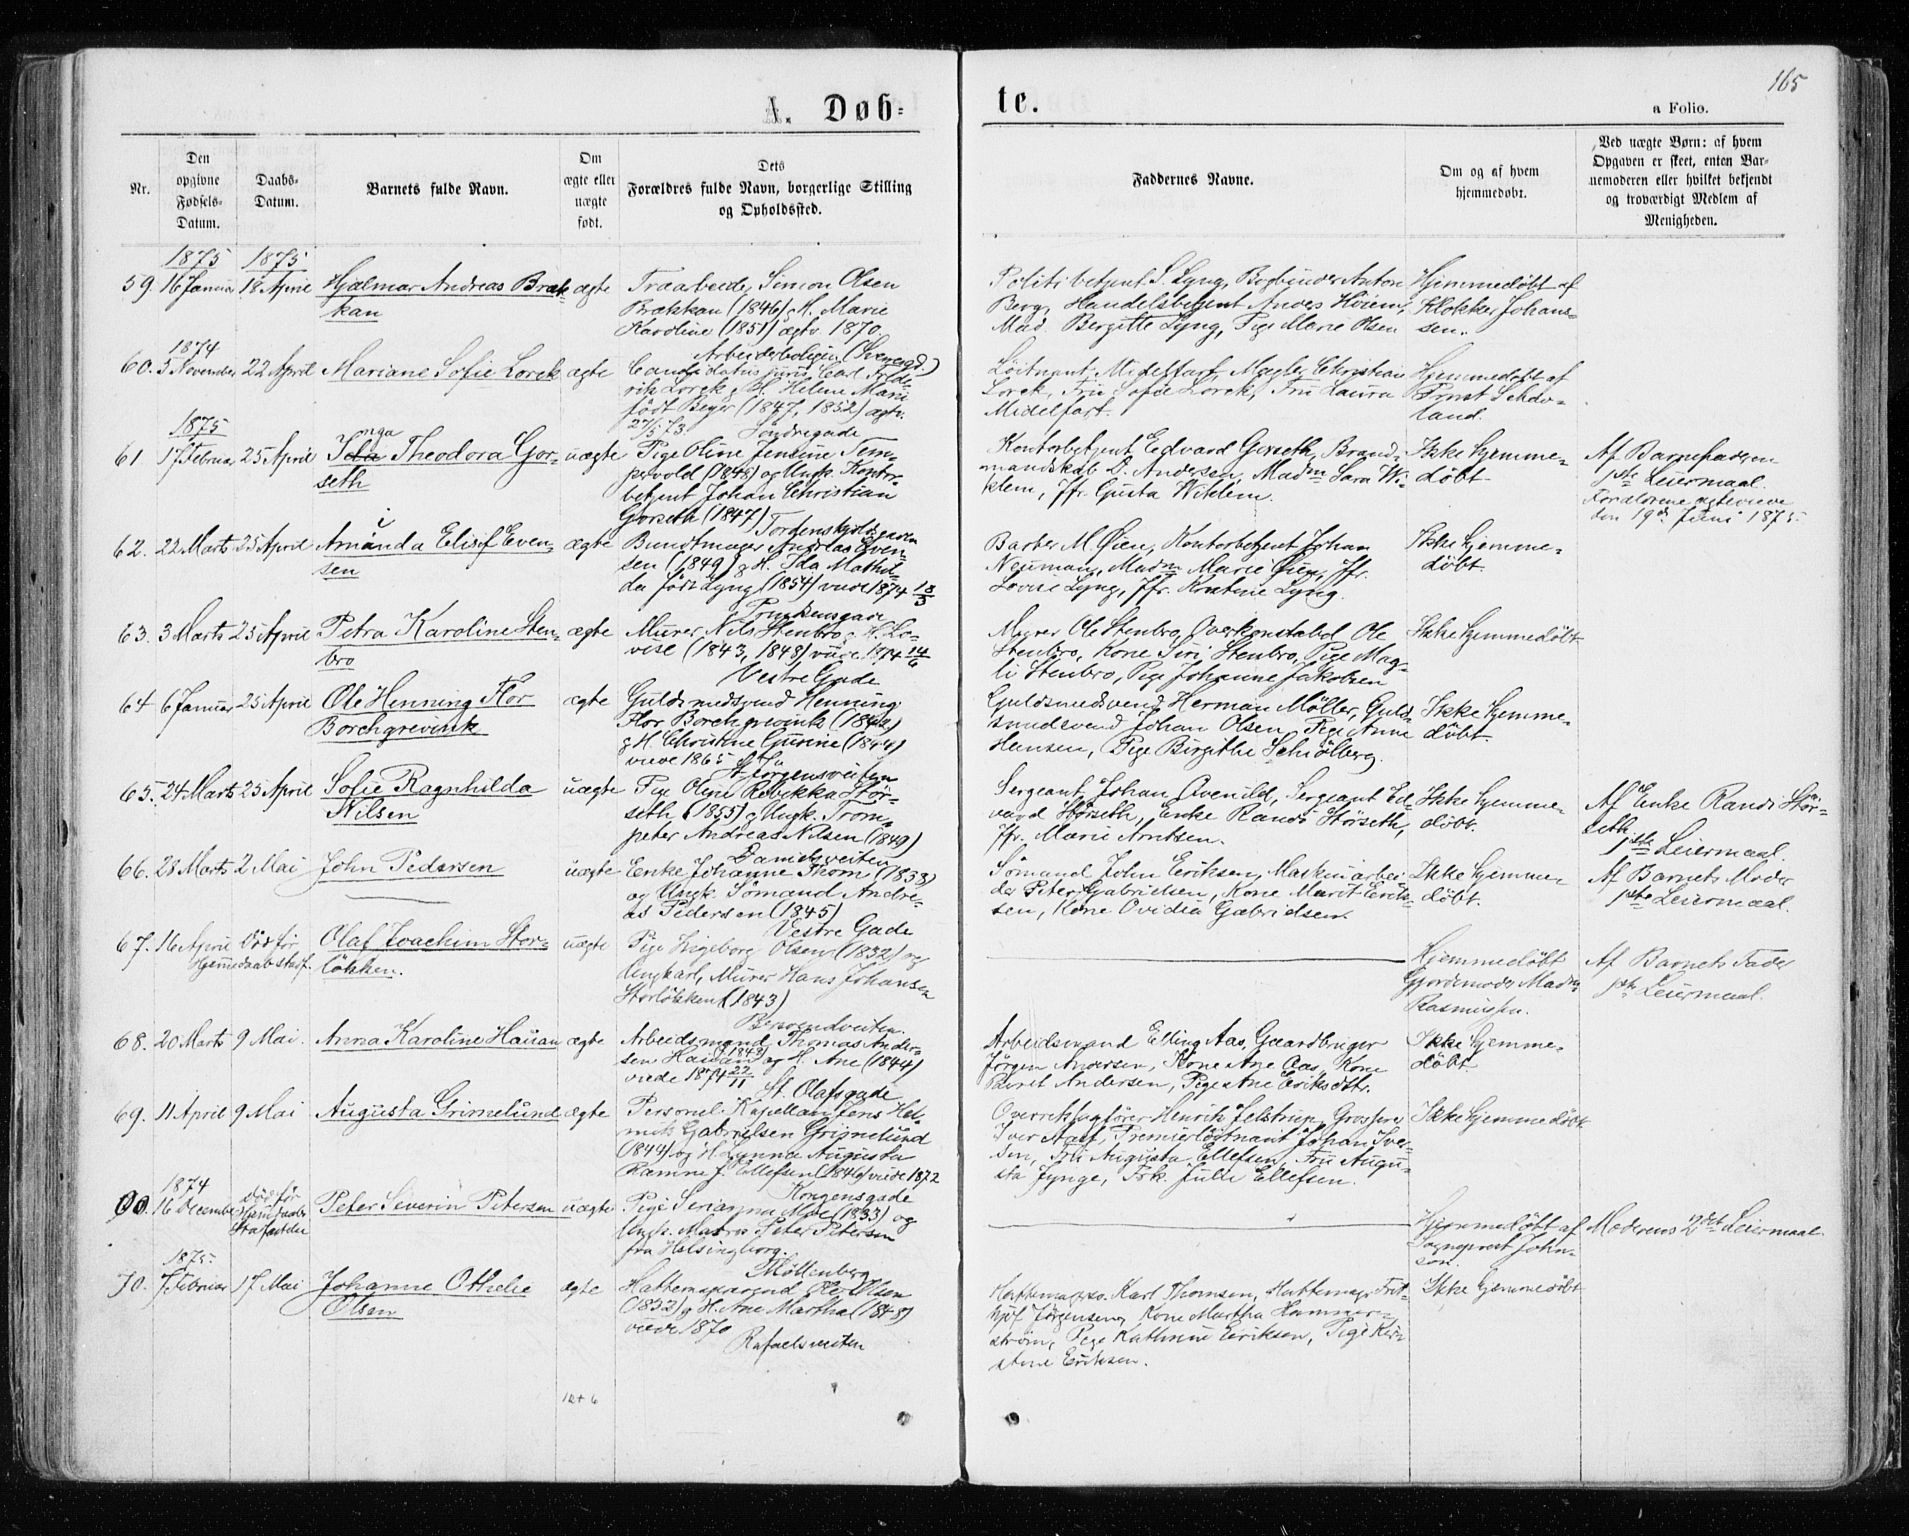 165
A. Døb-
te.
a Folio.
Nr.
Den opgivne Fødsels-Datum.
Daabs-Datum.
Barnets fulde Navn.
Om ægte eller uægte født.
Dets Forældres fulde Navn, borgerlige Stilling og Opholdssted.
Faddernes Navne.
Om og af hvem hjemmedøbt.
Ved uægte Børn: af hvem Opgaven er skeet, enten Barnemoderen eller hvilket bekjendt og troværdigt Medlem af Menigheden.
1875 1875
59. 16 Januar 18 April Hjalmar Andreas Bræk- ægte Træarbeider Simon Olsen
kan Brækkan (1846) og H. Marie
Karoline (1851) ægtv. 1870.
Arbeiderboligen (Svensgd.)
Politibetjent S. Lyng, Bogbinder Anton
Berg, Handelsbetjent Anders Høiem,
Mad. Bergitte Lyng, Pige Marie Olsen
Hjemmedøbt af
Klokker Johans-
sen.
1874
60. 5 November 22 April Mariane Sofie Lorck ægte Candidatus juris Carl Frede-
rik Lorck og H. Helene Marie
født Beyer (1847, 1852) ægtv.
27/5 73. Søndregade
Løitnant Midelfart, Mægler Christian
Lorck, Fru Sofie Lorck, Fru Laura
Midelfart.
Hjemmedøbt af
Provst Schdv-
land.
1875
nga
61. 17 Februar 25 April Ida Theodora Gor- uægte Pige Oline Jensine Tem-
seth pervold (1848) og Ungk. Kontor-
betjent Johan Christian
Gorseth (1847) Tordenskjoldsgaden
Kontorbetjent Edvard Gorseth, Brand-
mandskab D. Andersen, Madm Sara Wi-
klem, Jfr. Gusta Wiklem.
Ikke hjemme-
døbt.
Af Barnefaderen
1ste Leiermaal.
Forældrene ægteviede
den 19de Juni 1875.
62. 22 Marts 25 April Amanda Elisif Even- ægte Bundtmager Andreas Even-
sen sen (1849) og H. Ida Mathil-
de født Lyng (1854) viede 1874 18/3
Prinsensgade
Barber M. Øien, Kontorbetjent Johan
Neuman, Madm Marie Øien, Jfr.
Lovise Lyng, Jfr. Kristine Lyng.
Ikke hjemme-
døbt.
63. 3 Marts 25 April Petra Karoline Sten- ægte Murer Nils Stenbro og H. Lo-
bro vise (1843, 1848) viede 1874 14/6
Vestre Gade
Murer Ole Stenbro, Overkonstabel Ole
Stenbro, Kone Siri Stenbro, Pige Mag-
li Stenbro, Pige Johanne Jakobsen
Ikke hjemmedøbt
64 6 Januar 25 April Ole Henning Flor ægte Guldsmedsvend Henning
Borchgrevink Flor Borchgrevink (1842)
og H. Christine Gurine (1844)
viede 1865
St. Jørgensveiten
Guldsmedsvend Herman Møller, Guld-
smedsvend Johan Olsen, Pige Anne
Hansen, Pige Birgithe Schiølberg.
Ikke hjemme-
døbt.
65. 24 Marts 25 April Sofie Ragnhilda uægte Pige Oline Rebekka Stør-
Nilsen seth (1855) og Ungk. Trom-
peter Andreas Nilsen (1849)
Danielsveiten
Sergeant Johan Ovenild, Sergeant Ed-
vard Størseth, Enke Randi Størseth,
Jfr. Marie Arntsen.
Ikke hjemme-
døbt.
Af Enke Randi Stør-
seth
1ste Leiermaal.
66. 28 Marts 2 Mai John Pedersen uægte Enke Johanne Thom (1833)
og Ungk. Sømand Andre-
as Pedersen (1845)
Vestre Gade
Sømand John Eriksen, Maskinarbei-
der Peter Gabrielsen, Kone Marit Erik-
sen, Kone Ovidia Gabrielsen.
Ikke hjemme-
døbt.
Af Barnets Moder
1ste Leiermaal.
67. 16 April Død før Olaf Joachim Stor- uægte Pige Ingeborg Olsen (1832) og
Hjemdaab stadf. løkken. Ungkarl, Murer Hans Johansen
Storløkken (1843)
Hjemmedøbt
Gjordemoder Mad.
Rasmussen.
Af Barnets Fader
1ste Leiermaal.
68. 20 Marts 9 Mai. Anna Karoline Hauan ægte Arbeidsmand Thomas Ander-
sen Hauan (1848) og H. Ane (1844)
viede 1874 22/11
St. Olafsgade
Arbeidsmand Elling Aas, Gaardbruger
Jørgen Andersen, Kone Ane Aas, Kone
Beret Andersen, Pige Ane Eriksdtr.
Ikke hjemme-
døbt
69. 11 April 9 Mai Augusta Grimelund ægte Personel Kapellan Jens Hel-
mik Gabrielsen Grimelund
(1844) og H. Lynna Augusta
Ramne f. Ellefsen (1846) viede 1872
Kongensgade
Overretssagfører Henrik Jelstrup, Grosserer
Iver Aass, Premierløitnant Johan Iver-
sen, Fru Augusta Ellefsen, Fru Augu-
sta Jynge, Frk. Julie Ellefsen.
Ikke hjemmedøbt
1874
00. 16 December død før Peter Severin Petersen uægte Pige Serianna Moe (1833) og
Ungk. Matros Peter Petersen
fra Helsingborg.
Møllenberg
Hjemmedøbt af
Sogneprest John-
son.
Moderens 2det Leiermaal
1875
70. 7 Februar 17 Mai Johanne Othelie ægte Hattemagersvend Ole Olsen
Olsen (1852) og H. Ane Martha (1848)
viede 1870
Rafaelsveiten
Hattemagersv. Karl Thomsen, Hattemager Frit-
hjof Jørgensen, Kone Martha Hammer-
strøm, Pige Kathrine Eriksen, Pige Kir-
stine Eriksen.
Ikke hjemmedøbt
10 + 6